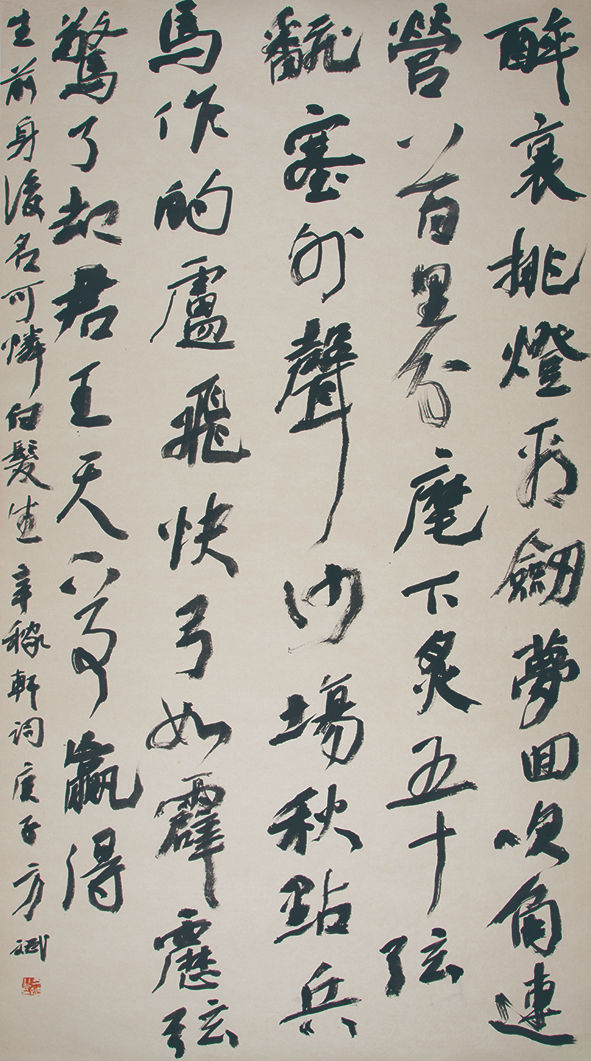 醉裏挑燈看劒夢回吹角連
營八百里分麾下炙五十弦
飜塞外聲沙場秋點兵
馬作的盧飛快弓如霹靂弦
驚了却君王天下事贏得
生前身後名可憐白髮生 辛稼軒詞 庚子 方斌